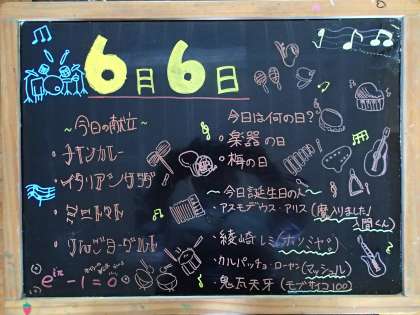 6月6日
～今日の献立～
・チキンカレー
・イタリアンサラダ
・ミニトマト
・りんごヨーグルト
今日は何の日?
・楽器の日
・梅の日
～今日誕生日の人～
・アスモデウス・アリス(魔入りました!入間くん)
・綾崎
・カルパッチョ・ローゼン(マッシュル)
・鬼瓦天牙(モブサイコ100)
e^iπ - 1 = 0